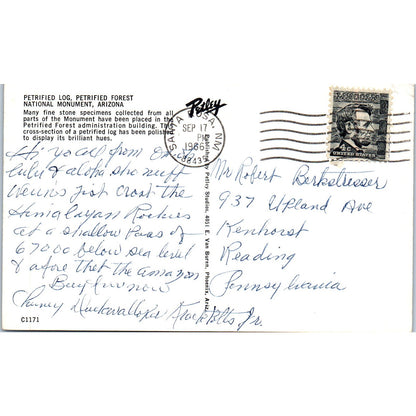 PETRIFIED LOG, PETRIFIED FOREST
NATIONAL MONUMENT, ARIZONA
Many fine stone specimens collected from all
parts of the Monument have been placed in the
Petrified Forest administration building. This
cross-section of a petrified log has been polished
to display its brilliant hues.
Petley
SANTA ROSA, NM
SEP 17
PM
1966
88435
4c
UNITED STATES
Hi ya all from
& aloha she nuff
just crost the
Himalayan Rockies
at a shallow Pass of
67000 below sea level
& afore thet the amazon
Bye fer now
Jr.
Mr Robert
937 Upland Ave
Kenhorst
Reading
Pennsylvania
Petley Studios, 4051 E. Van Buren, Phoenix, Ariz.
C1171